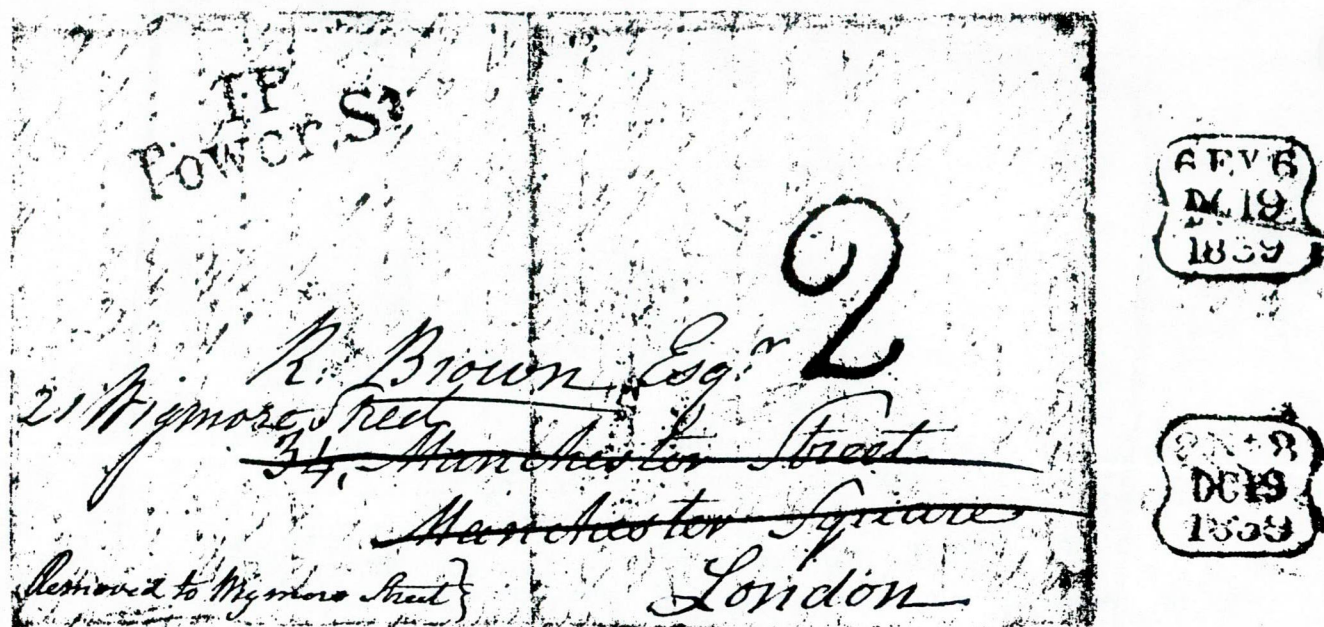 TP
Power St
2
R. Brown Esqr
21 Wigmore Street
34, Manchester Street
Manchester Square
London
Removed to Wigmore Street}
6 EV 6
DC 19
1839
8 8
DC 19
1839